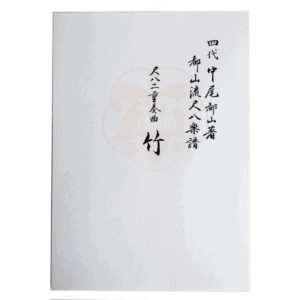 四代 中尾都山著
都山流尺八楽譜
尺八二重奏曲
竹